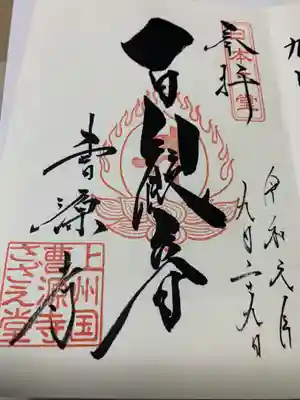 奉拝
令和元年
九月二十九日
百観音
曹源寺
上州国
曹源寺
さざえ堂